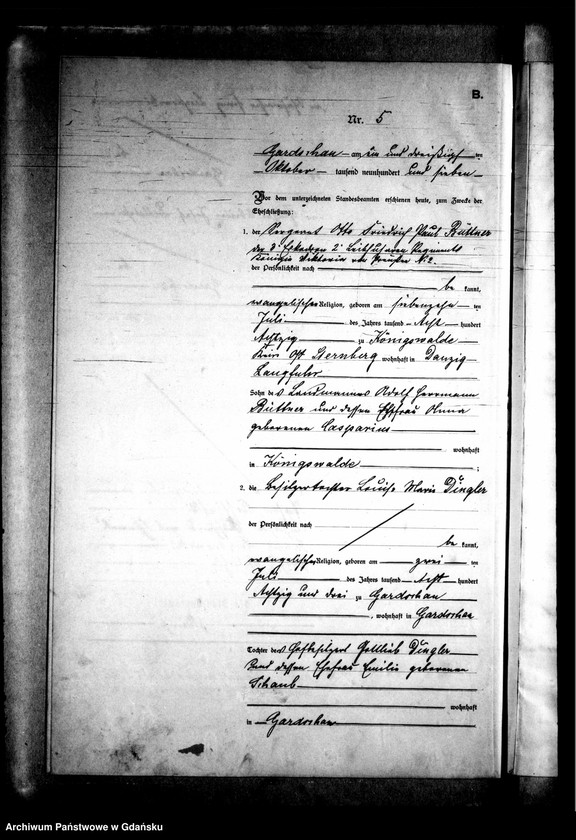 B.
Nr. 5
Gardschau am ein und dreißigsten
Oktober tausend neunhundert und sieben
Vor dem unterzeichneten Standesbeamten erschienen heute, zum Zwecke der
Eheschließung:
1. der Sergeant Otto Friedrich Paul Büttner
der 3t Eskadron 2t Leibhusaren Regiments
Königin Viktoria von Preußen N: 2.
der Persönlichkeit nach
be kannt,
evangelischer Religion, geboren am siebenzehnten
Juli des Jahres tausend Acht hundert
Achtzig zu Königswalde
Kreis Ost Sternberg wohnhaft in Danzig
Langfuhr
Sohn des Landmannes Adolf Herrmann
Büttner und dessen Ehefrau Anna
geborenen Casparius
wohnhaft
in Königswalde ;
2. die Besitzertochter Louise Marie Dingler
der Persönlichkeit nach
be kannt,
evangelischer Religion, geboren am zwei ten
Juli des Jahres tausend Acht hundert
Achtzig und drei zu Gardschau
, wohnhaft in Gardschau
Tochter des Hofbesitzers Gottlieb Dingler
und dessen Ehefrau Emilie geborenen
Schaub
wohnhaft
in Gardschau
Archiwum Państwowe w Gdańsku